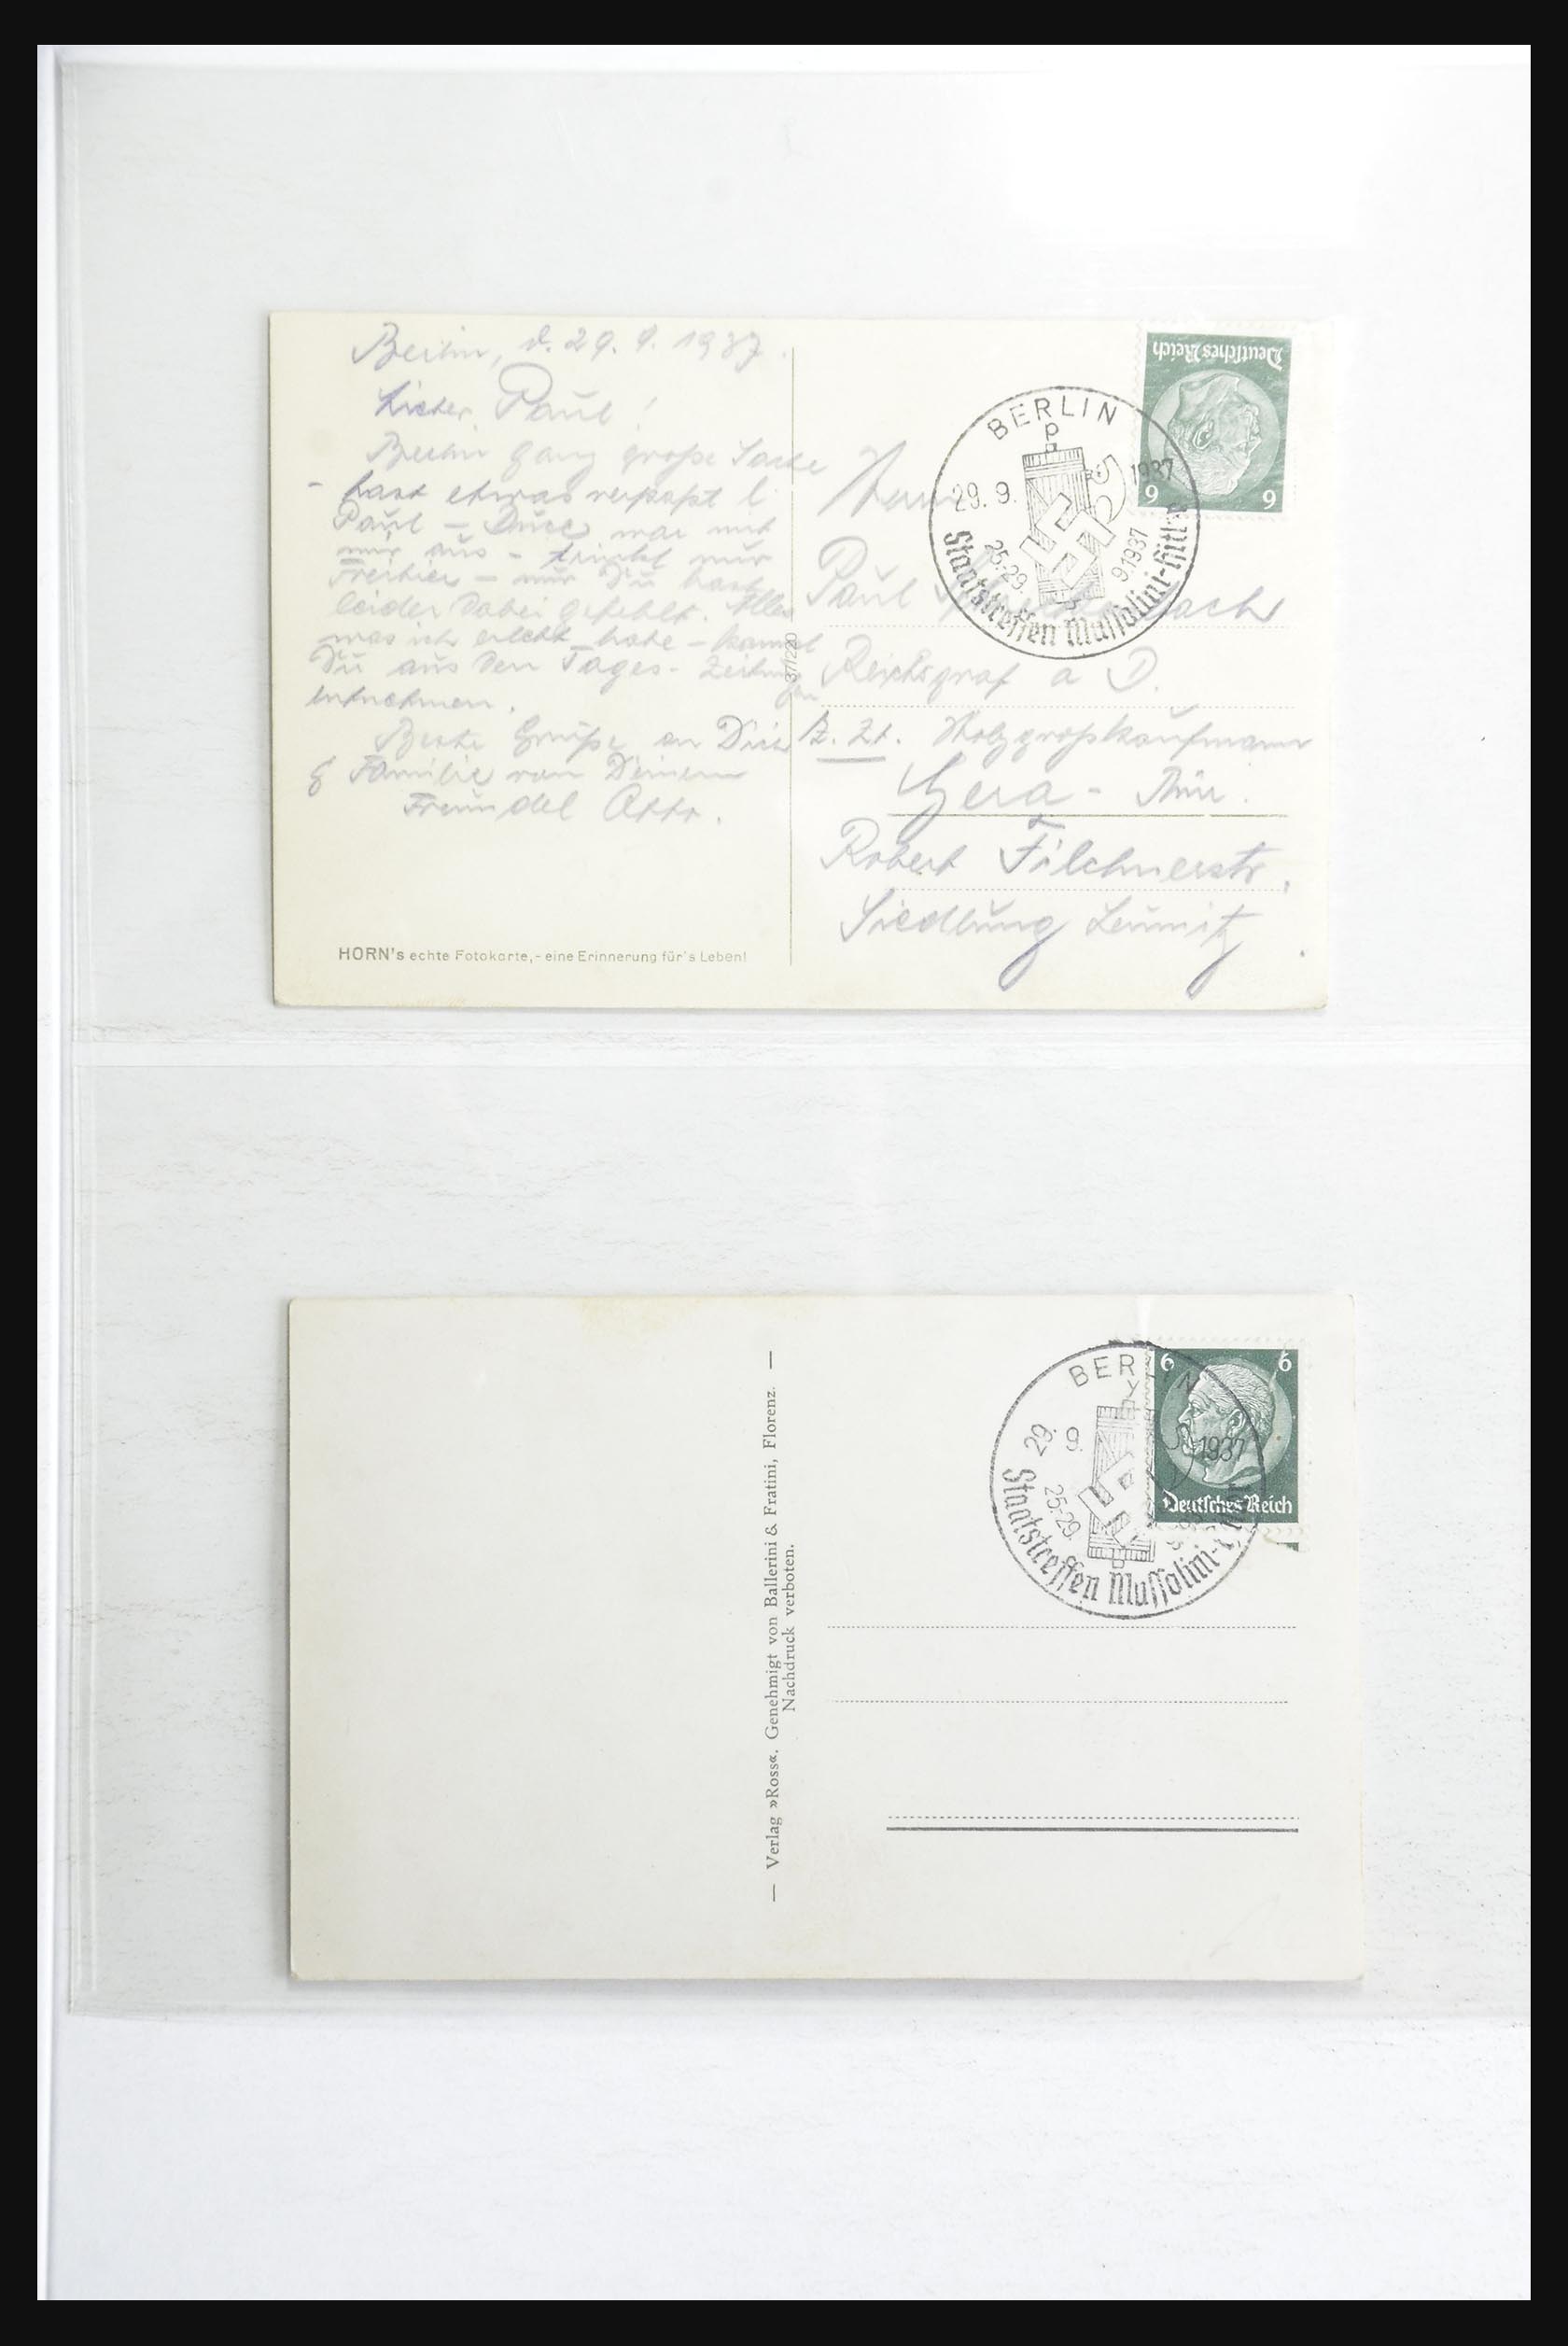 Berlin, d. 29. 9. 1937.
Lieber Paul!
Berlin ganz große Sache
- hast etwas verpaßt l.
Paul - Duce war mit
mir aus - trinkt nur
Freibier - nur Du hast
leider dabei gefehlt. Alles
was ich erlebt habe - kannst
Du aus den Tages-Zeitungen
entnehmen.
Beste Grüße an Dich
& Familie von Deinem
Freundel Otto.
HORN's echte Fotokarte,- eine Erinnerung für's Leben!
37/220
Deutsches Reich
6 6
BERLIN
P
29. 9. 1937
25:29. 9.1937
Staatstreffen Mussolini-Hitler
Herrn
Paul
Reichsgraf a D.
z. Zt. Holzgroßkaufmann
Gera - Thür.
Robert Filchnerstr.
Siedlung Leumnitz
— Verlag »Ross«. Genehmigt von Ballerini & Fratini, Florenz. —
Nachdruck verboten.
6 6
Deutsches Reich
BERLIN
y
29. 9. 1937
25:29.
Staatstreffen Mussolini-